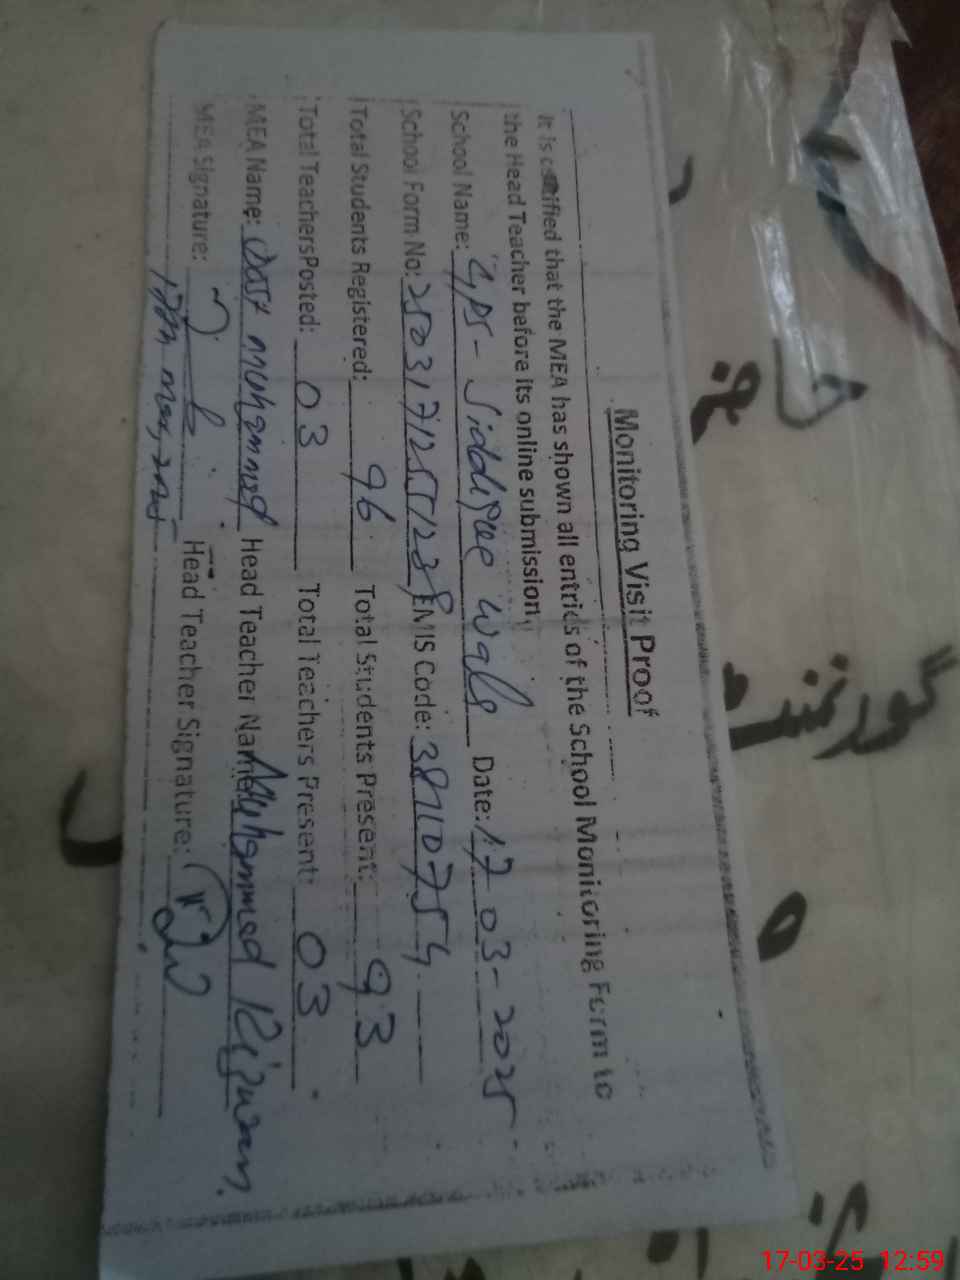 Monitoring Visit Proof
It is certified that the MEA has shown all entries of the School Monitoring Form to
the Head Teacher before its online submission.
School Name: GPS- Siddique wala Date: 17-03-2025
School Form No: EMIS Code: 38210754
Total Students Registered: 96 Total Students Present: 93
Total Teachers Posted: 03 Total Teachers Present: 03
MEA Name: Dost Muhammad Head Teacher Name: Muhammad Rizwan.
MEA Signature: Head Teacher Signature:
گورنمنٹ
17-03-25 12:59